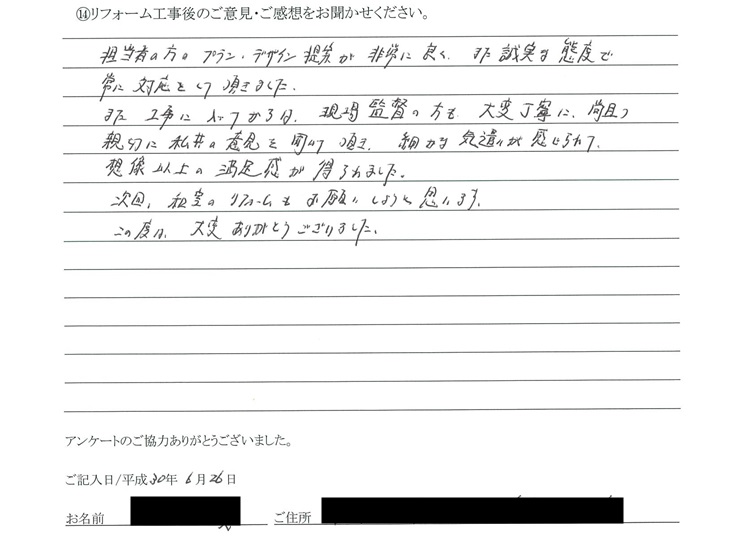 ⑭リフォーム工事後のご意見・ご感想をお聞かせください。
担当者の方の プラン・デザイン提案が 非常に良く、また誠実な態度で
常に 対応をして頂きました。
また 工事に入ってからは、現場監督の方も 大変丁寧に、尚且つ
親切に 私共の意見を聞いて頂き、細かな気遣いが感じられて、
想像以上の満足感が得られました。
次回、和室のリフォームもお願いしようと思います。
この度は、大変ありがとうございました。
アンケートのご協力ありがとうございました。
ご記入日/平成30年6月26日
お名前 ご住所